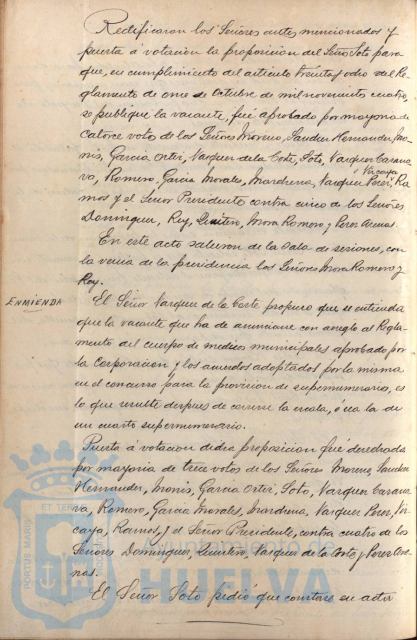 Rectificaron los Señores antes mencionados y
puesta á votación la proposición del Señor Soto para
que, en cumplimiento del articulo treinta y ocho del Re-
glamento de once de Octubre de mil novecientos cuatro,
se publique la vacante, fué aprobado por mayoria de
catorce votos de los Señores Moreno, Sanchez Hernandez, Mo-
nis, Garcia Ortiz, Vazquez de la Corte, Soto, Vazquez Carava-
ca, Romero, Garcia Morales, Vazquez Perez, Vizcaya, Ra-
mos y el Señor Presidente contra cinco de los Señores
Dominguez, Rey, Quintero, Mora Romero y Perez Arenas.
En este acto salieron de la Sala de sesiones, con
la venia de la presidencia los Señores Mora Romero y
Rey.
ENMIENDA
El Señor Vazquez de la Corte propuso que se entienda
que la vacante que ha de anunciarse con arreglo al Regla-
mento del cuerpo de medicos municipales aprobado por
la Corporación y los acuerdos adoptados por la misma
en el concurso para la provision de supernumerarios, es
la que resulte despues de correrse la escala, ó sea la de
un cuarto supernumerario.
Puesta á votación dicha proposicion fué desechada
por mayoria de trece votos de los Señores Moreno, Sanchez
Hernandez, Monis, Garcia Ortiz, Soto, Vazquez Carava-
ca, Romero, Garcia Morales, Vazquez Perez, Viz-
caya, Ramos, y el Señor Presidente, contra cuatro de los
Señores Dominguez, Quintero, Vazquez de la Corte y Perez Are-
nas.
El Señor Soto pidió que constase en acta
PORTUS MARIS ET TERRAE
HUELVA